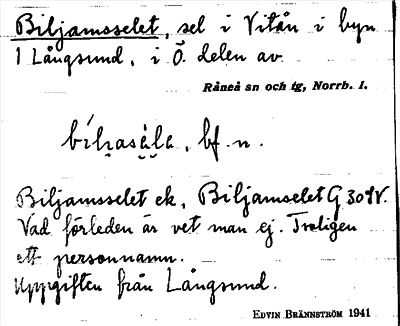 Biljamsselet, sel i Vitån i byn
Långsund, i Ö. delen av
Råneå sn och tg, Norrb. l.
bf. n.
Biljamsselet ek, Biljamselet G 30 V.
Vad förleden är vet man ej. Troligen
ett personnamn.
Uppgiften från Långsund.
EDVIN BRÄNNSTRÖM 1941